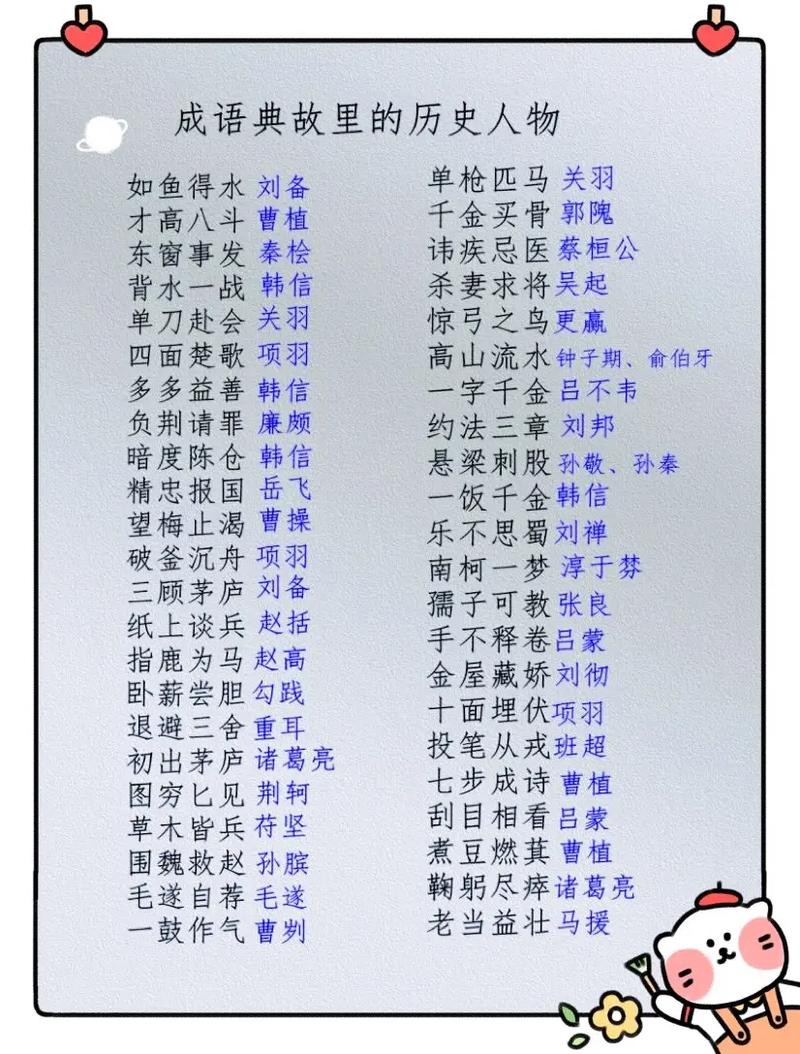 成语典故里的历史人物
如鱼得水 刘备
才高八斗 曹植
东窗事发 秦桧
背水一战 韩信
单刀赴会 关羽
四面楚歌 项羽
多多益善 韩信
负荆请罪 廉颇
暗度陈仓 韩信
精忠报国 岳飞
望梅止渴 曹操
破釜沉舟 项羽
三顾茅庐 刘备
纸上谈兵 赵括
指鹿为马 赵高
卧薪尝胆 勾践
退避三舍 重耳
初出茅庐 诸葛亮
图穷匕见 荆轲
草木皆兵 苻坚
围魏救赵 孙膑
毛遂自荐 毛遂
一鼓作气 曹刿
单枪匹马 关羽
千金买骨 郭隗
讳疾忌医 蔡桓公
杀妻求将 吴起
惊弓之鸟 更羸
高山流水 钟子期、俞伯牙
一字千金 吕不韦
约法三章 刘邦
悬梁刺股 孙敬、孙秦
一饭千金 韩信
乐不思蜀 刘禅
南柯一梦 淳于棼
孺子可教 张良
手不释卷 吕蒙
金屋藏娇 刘彻
十面埋伏 项羽
投笔从戎 班超
七步成诗 曹植
刮目相看 吕蒙
煮豆燃萁 曹植
鞠躬尽瘁 诸葛亮
老当益壮 马援